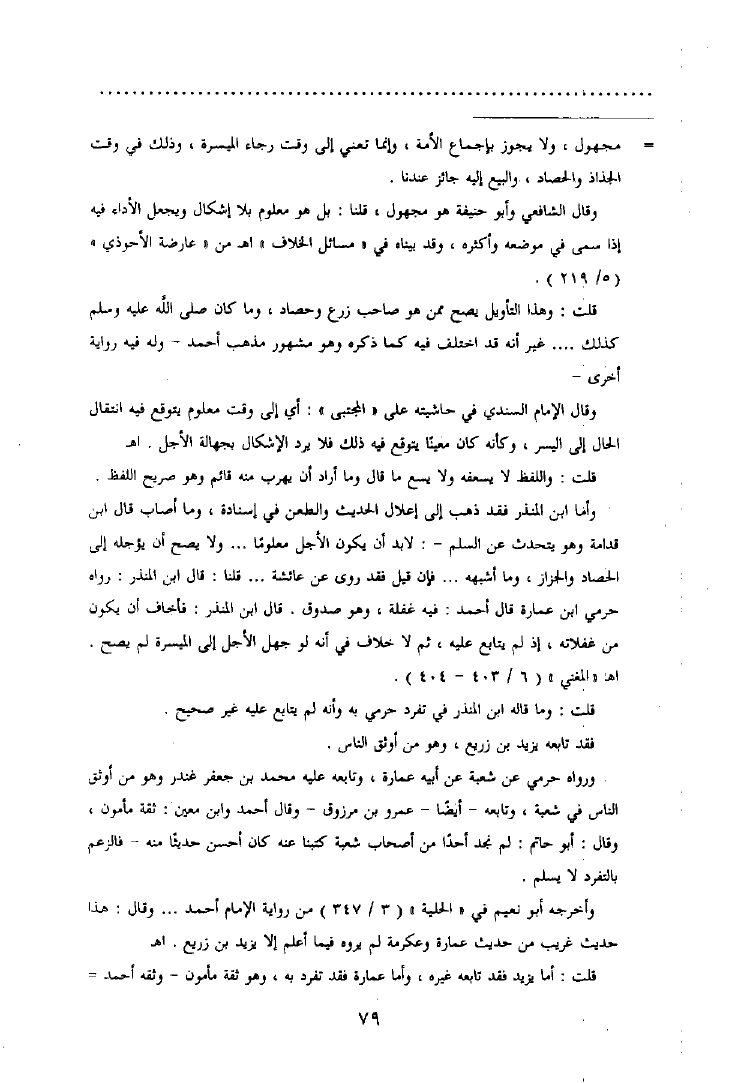 = مجهول ، ولا يجوز بإجماع الأمة ، وإنما تعني إلى وقت رجاء الميسرة ، وذلك في وقت
الجذاذ والحصاد ، والبيع إليه جائز عندنا .
وقال الشافعي وأبو حنيفة هو مجهول ، قلنا : بل هو معلوم بلا إشكال ويجعل الأداء فيه
إذا سمى في موضعه وأكثره ، وقد بيناه في « مسائل الخلاف » اهـ من « عارضة الأحوذي »
( ٥/ ٢١٩ ) .
قلت : وهذا التأويل يصح ممن هو صاحب زرع وحصاد ، وما كان صلى الله عليه وسلم
كذلك .... غير أنه قد اختلف فيه كما ذكره وهو مشهور مذهب أحمد – وله فيه رواية
أخرى –
وقال الإمام السندي في حاشيته على « المجتبى » : أي إلى وقت معلوم يتوقع فيه انتقال
الحال إلى اليسر ، وكأنه كان معينًا يتوقع فيه ذلك فلا يرد الإشكال بجهالة الأجل . اهـ
قلت : واللفظ لا يسعفه ولا يسع ما قال وما أراد أن يهرب منه قائم وهو صريح اللفظ .
وأما ابن المنذر فقد ذهب إلى إعلال الحديث والطعن في إسنادة ، وما أصاب قال ابن
قدامة وهو يتحدث عن السلم – : لابد أن يكون الأجل معلومًا ... ولا يصح أن يؤجله إلى
الحصاد والجزاز ، وما أشبهه ... فإن قيل فقد روى عن عائشة ... قلنا : قال ابن المنذر : رواه
حرمي ابن عمارة قال أحمد : فيه غفلة ، وهو صدوق . قال ابن المنذر : فأخاف أن يكون
من غفلاته ، إذ لم يتابع عليه ، ثم لا خلاف في أنه لو جهل الأجل إلى الميسرة لم يصح .
اهـ « المغني » ( ٦ / ٤٠٣ – ٤٠٤ ) .
قلت : وما قاله ابن المنذر في تفرد حرمي به وأنه لم يتابع عليه غير صحيح .
فقد تابعه يزيد بن زريع ، وهو من أوثق الناس .
ورواه حرمي عن شعبة عن أبيه عمارة ، وتابعه عليه محمد بن جعفر غندر وهو من أوثق
الناس في شعبة ، وتابعه – أيضًا – عمرو بن مرزوق – وقال أحمد وابن معين : ثقة مأمون ،
وقال : أبو حاتم : لم نجد أحدًا من أصحاب شعبة كتبنا عنه كان أحسن حديثًا منه – فالزعم
بالتفرد لا يسلم .
وأخرجه أبو نعيم في « الحلية » ( ٣ / ٣٤٧ ) من رواية الإمام أحمد ... وقال : هذا
حديث غريب من حديث عمارة وعكرمة لم يروه فيما أعلم إلا يزيد بن زريع . اهـ
قلت : أما يزيد فقد تابعه غيره ، وأما عمارة فقد تفرد به ، وهو ثقة مأمون – وثقه أحمد =
٧٩